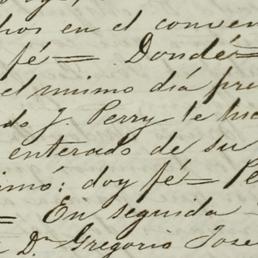 hos en el conven
fé= Dondé=
el mismo día pre
do J. Perry le hi
enterado de su
imó: doy fé= Pe
= En seguida
Dn Gregorio Jose